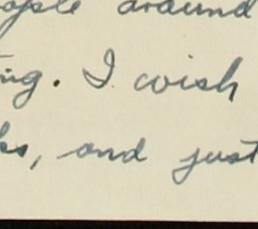 ople around
ing. I wish
ks, and just